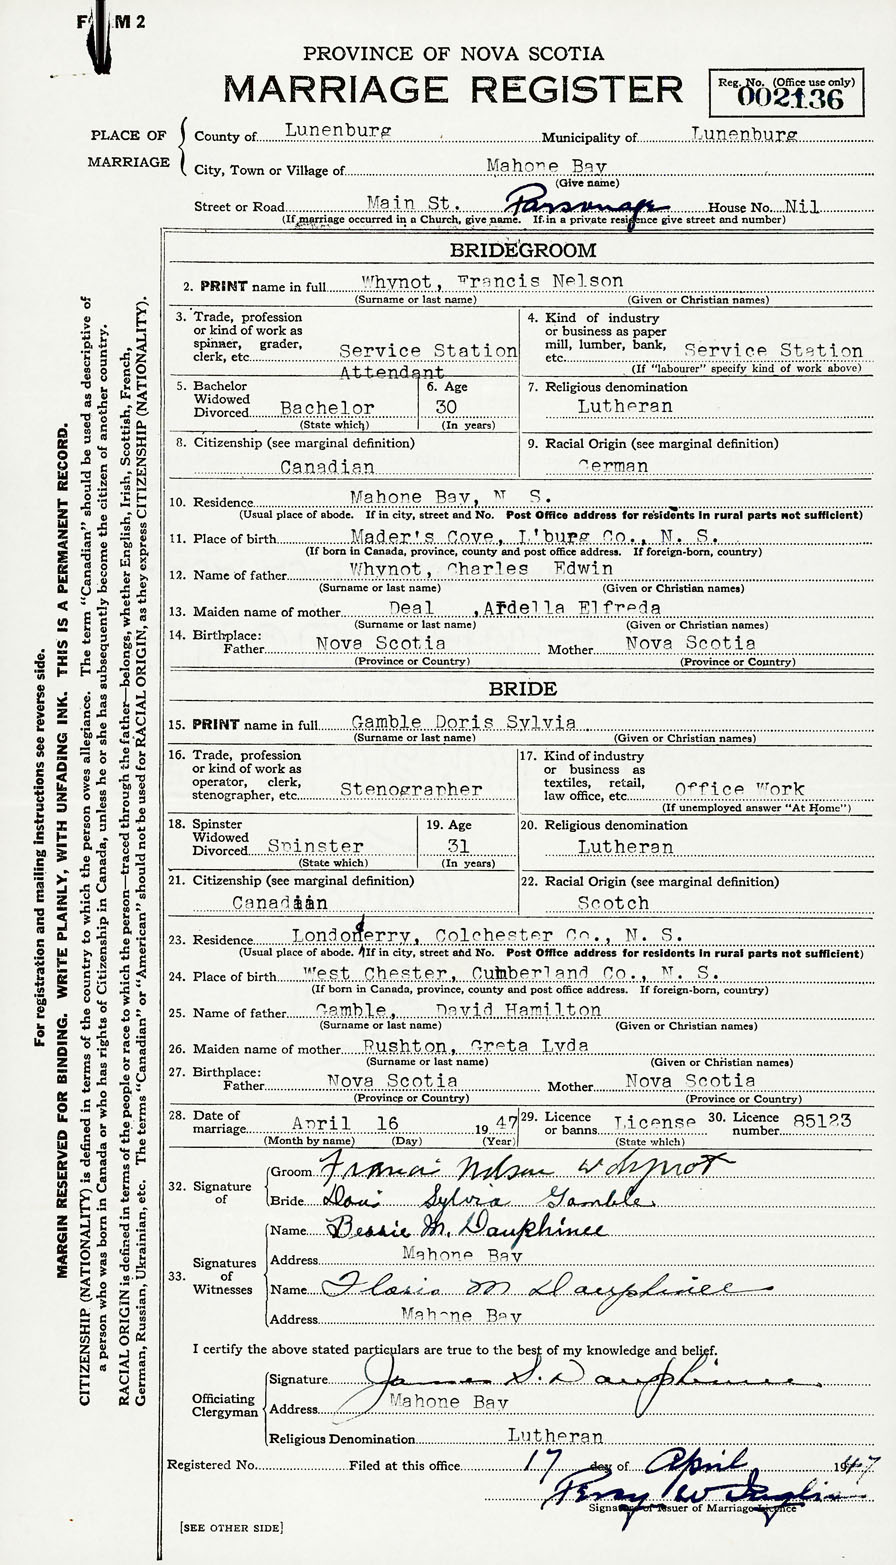 F M 2
PROVINCE OF NOVA SCOTIA
MARRIAGE REGISTER
Reg. No. (Office use only)
002136
PLACE OF MARRIAGE
County of Lunenburg Municipality of Lunenburg
City, Town or Village of Mahone Bay
(Give name)
Street or Road Main St. Parsonage House No. Nil
(If marriage occurred in a Church, give name. If in a private residence give street and number)
BRIDEGROOM
2. PRINT name in full Whynot, Francis Nelson
(Surname or last name) (Given or Christian names)
3. Trade, profession or kind of work as spinner, grader, clerk, etc. Service Station Attendant
4. Kind of industry or business as paper mill, lumber, bank, etc. Service Station
(If "labourer" specify kind of work above)
5. Bachelor Widowed Divorced Bachelor
(State which)
6. Age 30
(In years)
7. Religious denomination
Lutheran
8. Citizenship (see marginal definition)
Canadian
9. Racial Origin (see marginal definition)
German
10. Residence Mahone Bay, N. S.
(Usual place of abode. If in city, street and No. Post Office address for residents in rural parts not sufficient)
11. Place of birth Mader's Cove, L'burg Co., N. S.
(If born in Canada, province, county and post office address. If foreign-born, country)
12. Name of father Whynot, Charles Edwin
(Surname or last name) (Given or Christian names)
13. Maiden name of mother Deal ,Ardella Elfreda
(Surname or last name) (Given or Christian names)
14. Birthplace:
Father Nova Scotia Mother Nova Scotia
(Province or Country) (Province or Country)
BRIDE
15. PRINT name in full Gamble Doris Sylvia
(Surname or last name) (Given or Christian names)
16. Trade, profession or kind of work as operator, clerk, stenographer, etc. Stenographer
17. Kind of industry or business as textiles, retail, law office, etc. Office Work
(If unemployed answer "At Home")
18. Spinster Widowed Divorced Spinster
(State which)
19. Age 31
(In years)
20. Religious denomination
Lutheran
21. Citizenship (see marginal definition)
Canadian
22. Racial Origin (see marginal definition)
Scotch
23. Residence Londonderry, Colchester Co., N. S.
(Usual place of abode. If in city, street and No. Post Office address for residents in rural parts not sufficient)
24. Place of birth West Chester, Cumberland Co., N. S.
(If born in Canada, province, county and post office address. If foreign-born, country)
25. Name of father Gamble, David Hamilton
(Surname or last name) (Given or Christian names)
26. Maiden name of mother Rushton, Greta Lyda
(Surname or last name) (Given or Christian names)
27. Birthplace:
Father Nova Scotia Mother Nova Scotia
(Province or Country) (Province or Country)
28. Date of marriage April 16 1947
(Month by name) (Day) (Year)
29. Licence or banns License
(State which)
30. Licence number 85123
32. Signature of
Groom Francis Nelson Whynot
Bride Doris Sylvia Gamble
33. Signatures of Witnesses
Name Bessie M. Dauphinee
Address Mahone Bay
Name Floris M Dauphinee
Address Mahone Bay
I certify the above stated particulars are true to the best of my knowledge and belief.
Officiating Clergyman
Signature James S. Dauphinee
Address Mahone Bay
Religious Denomination Lutheran
Registered No. Filed at this office 17 day of April 1947
Percy W
Signature of Issuer of Marriage Licence
[SEE OTHER SIDE]
For registration and mailing instructions see reverse side.
MARGIN RESERVED FOR BINDING. WRITE PLAINLY, WITH UNFADING INK. THIS IS A PERMANENT RECORD.
CITIZENSHIP (NATIONALITY) is defined in terms of the country to which the person owes allegiance. The term "Canadian" should be used as descriptive of
a person who was born in Canada or who has rights of Citizenship in Canada, unless he or she has subsequently become the citizen of another country.
RACIAL ORIGIN is defined in terms of the people or race to which the person—traced through the father—belongs, whether English, Irish, Scottish, French,
German, Russian, Ukrainian, etc. The terms "Canadian" or "American" should not be used for RACIAL ORIGIN, as they express CITIZENSHIP (NATIONALITY).